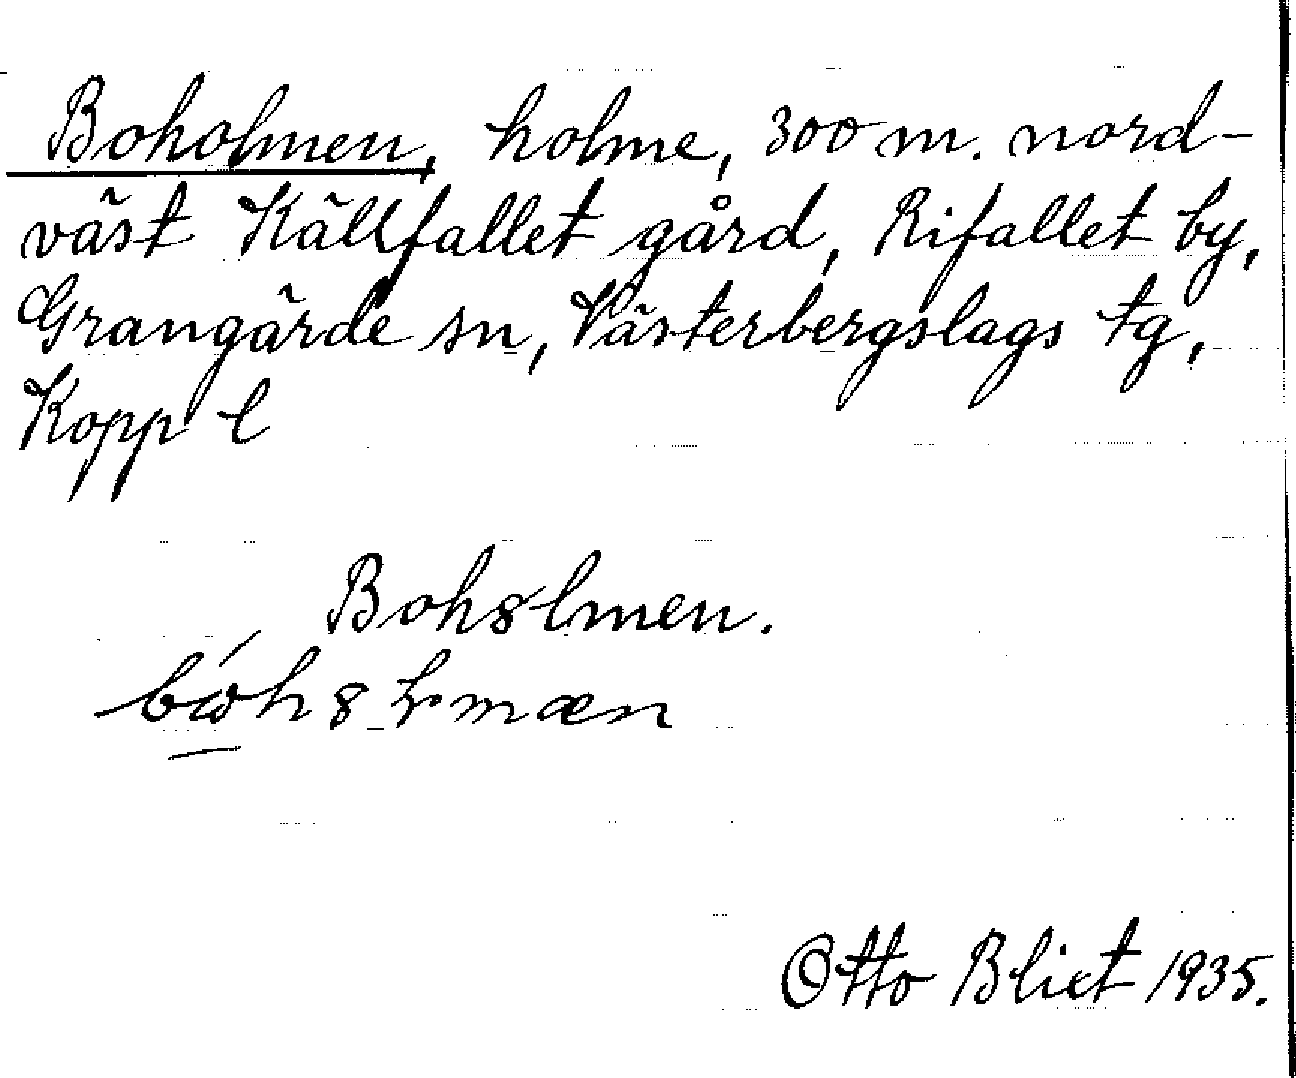 Boholmen, holme, 300 m. nord-
väst Källfallet gård, Rifallet by,
Grangärde sn, Västerbergslags tg,
Kopp l
Bohslmen.
Otto Blixt 1935.